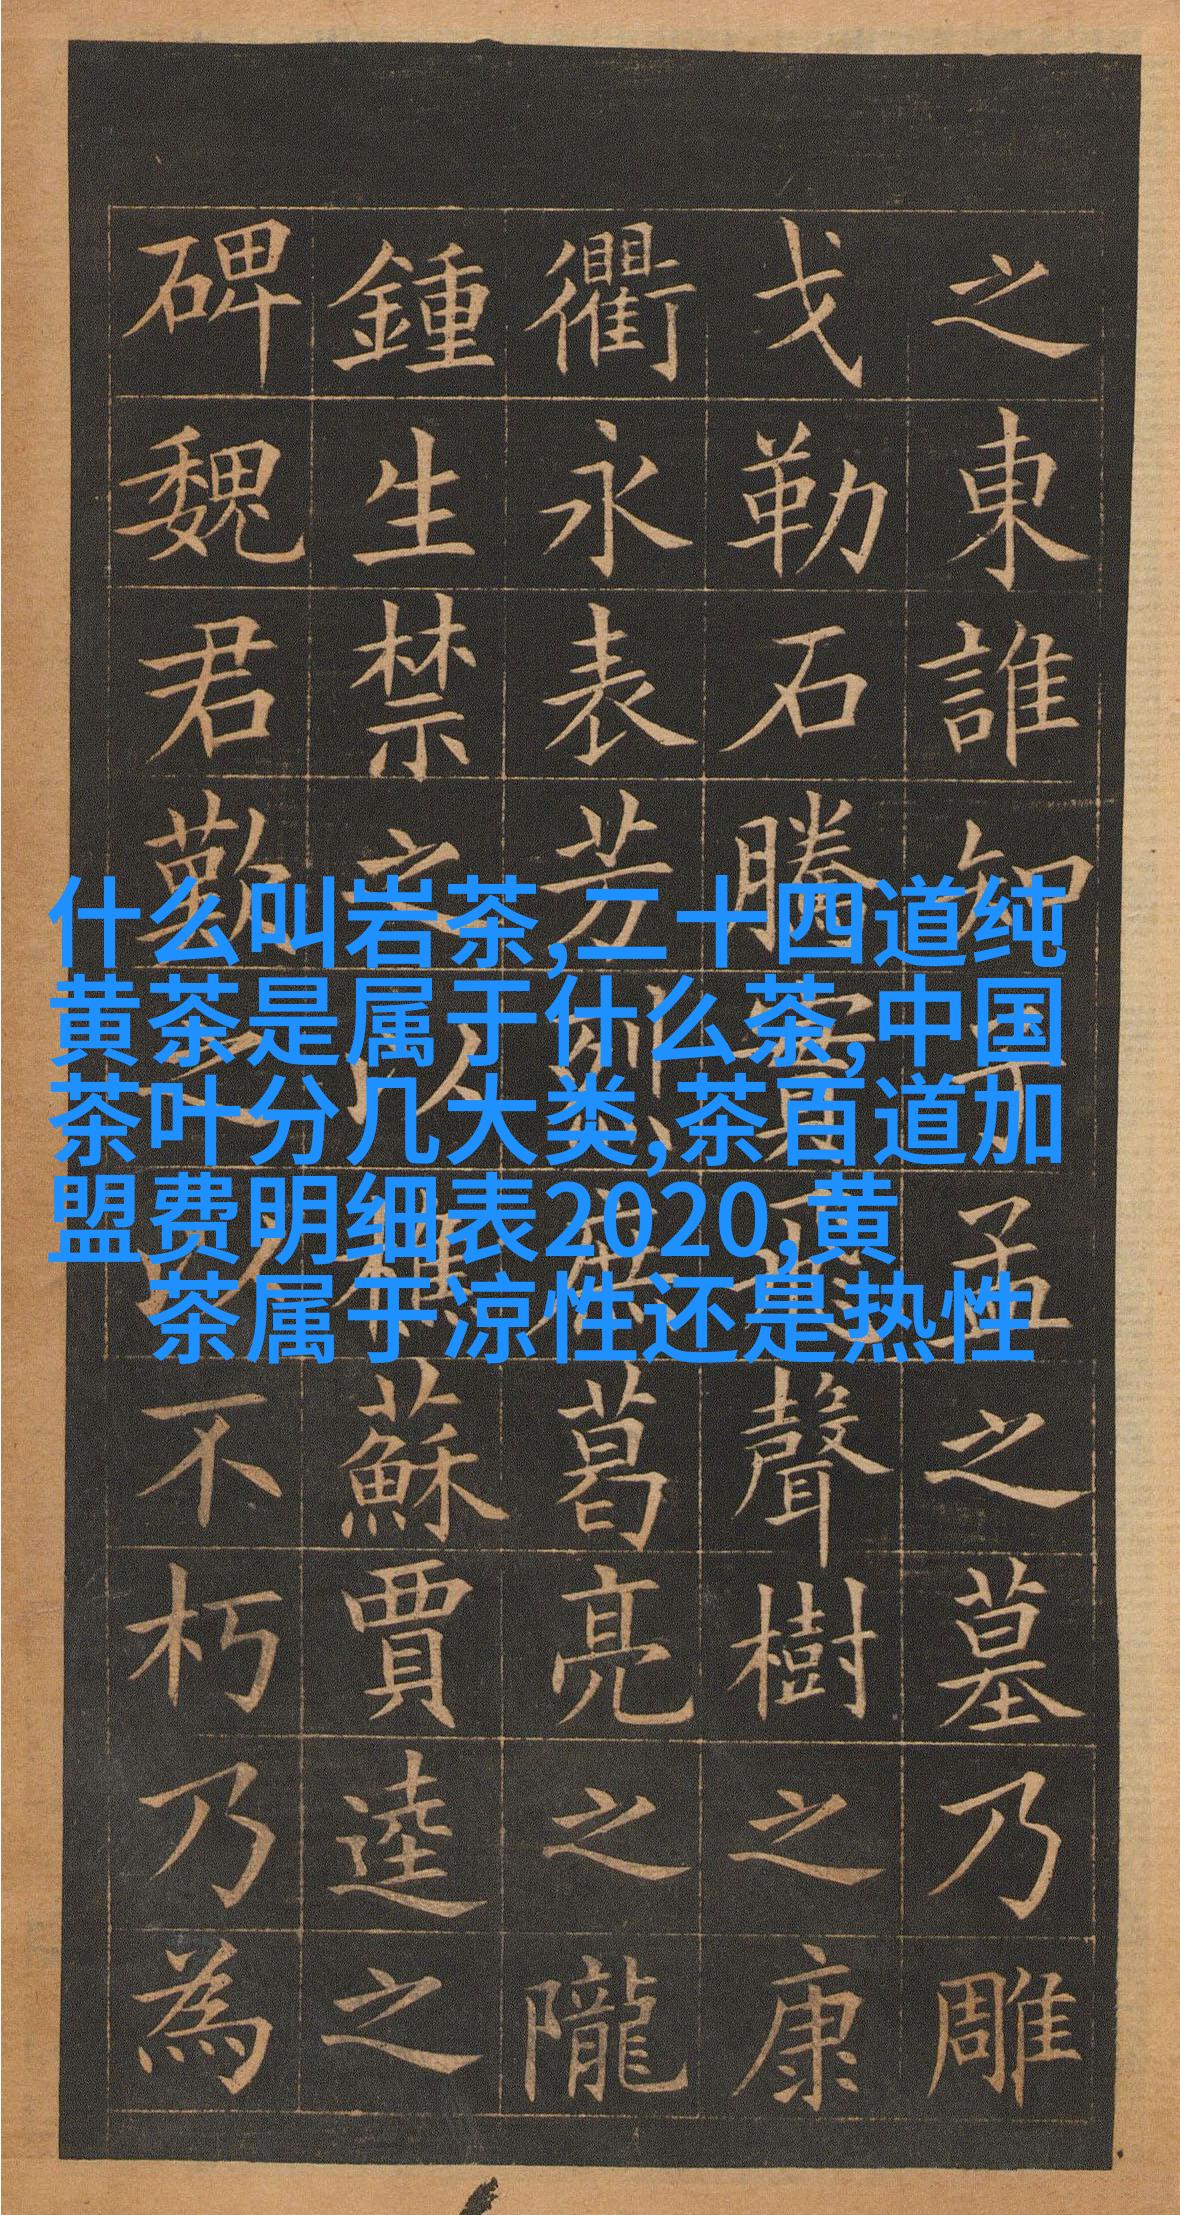 什么叫岩茶,二十四道纯
黄茶是属于什么茶,中国
茶叶分几大类,茶百道加
盟费明细表2020,黄
茶属于凉性还是热性
之東誰知子孟之墓乃雕
戈勒石騰實飛聲樹之康
衢永表芳烈庶葛亮之隴
鍾生禁之以樵蘇賈逵之
碑魏君勤之以不朽乃為